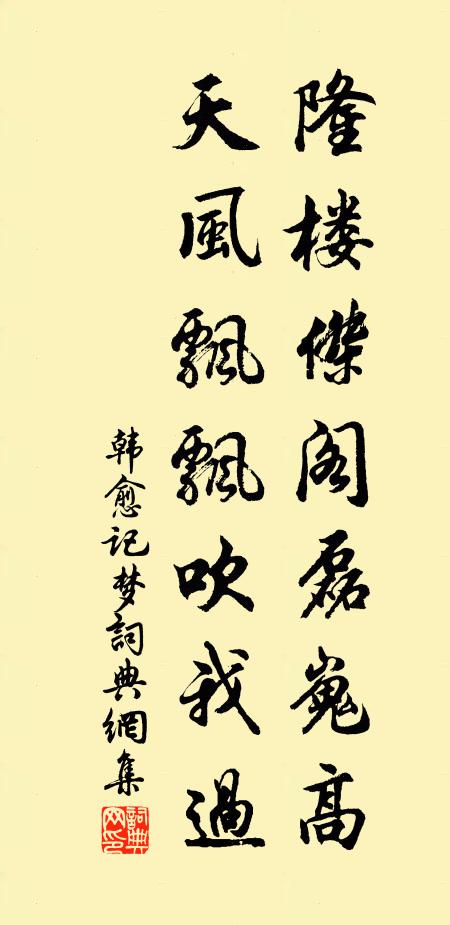 隆楼傑阁磊嵬高
天風飄飄吹我過
韩愈记梦詞典網集
詞典网印